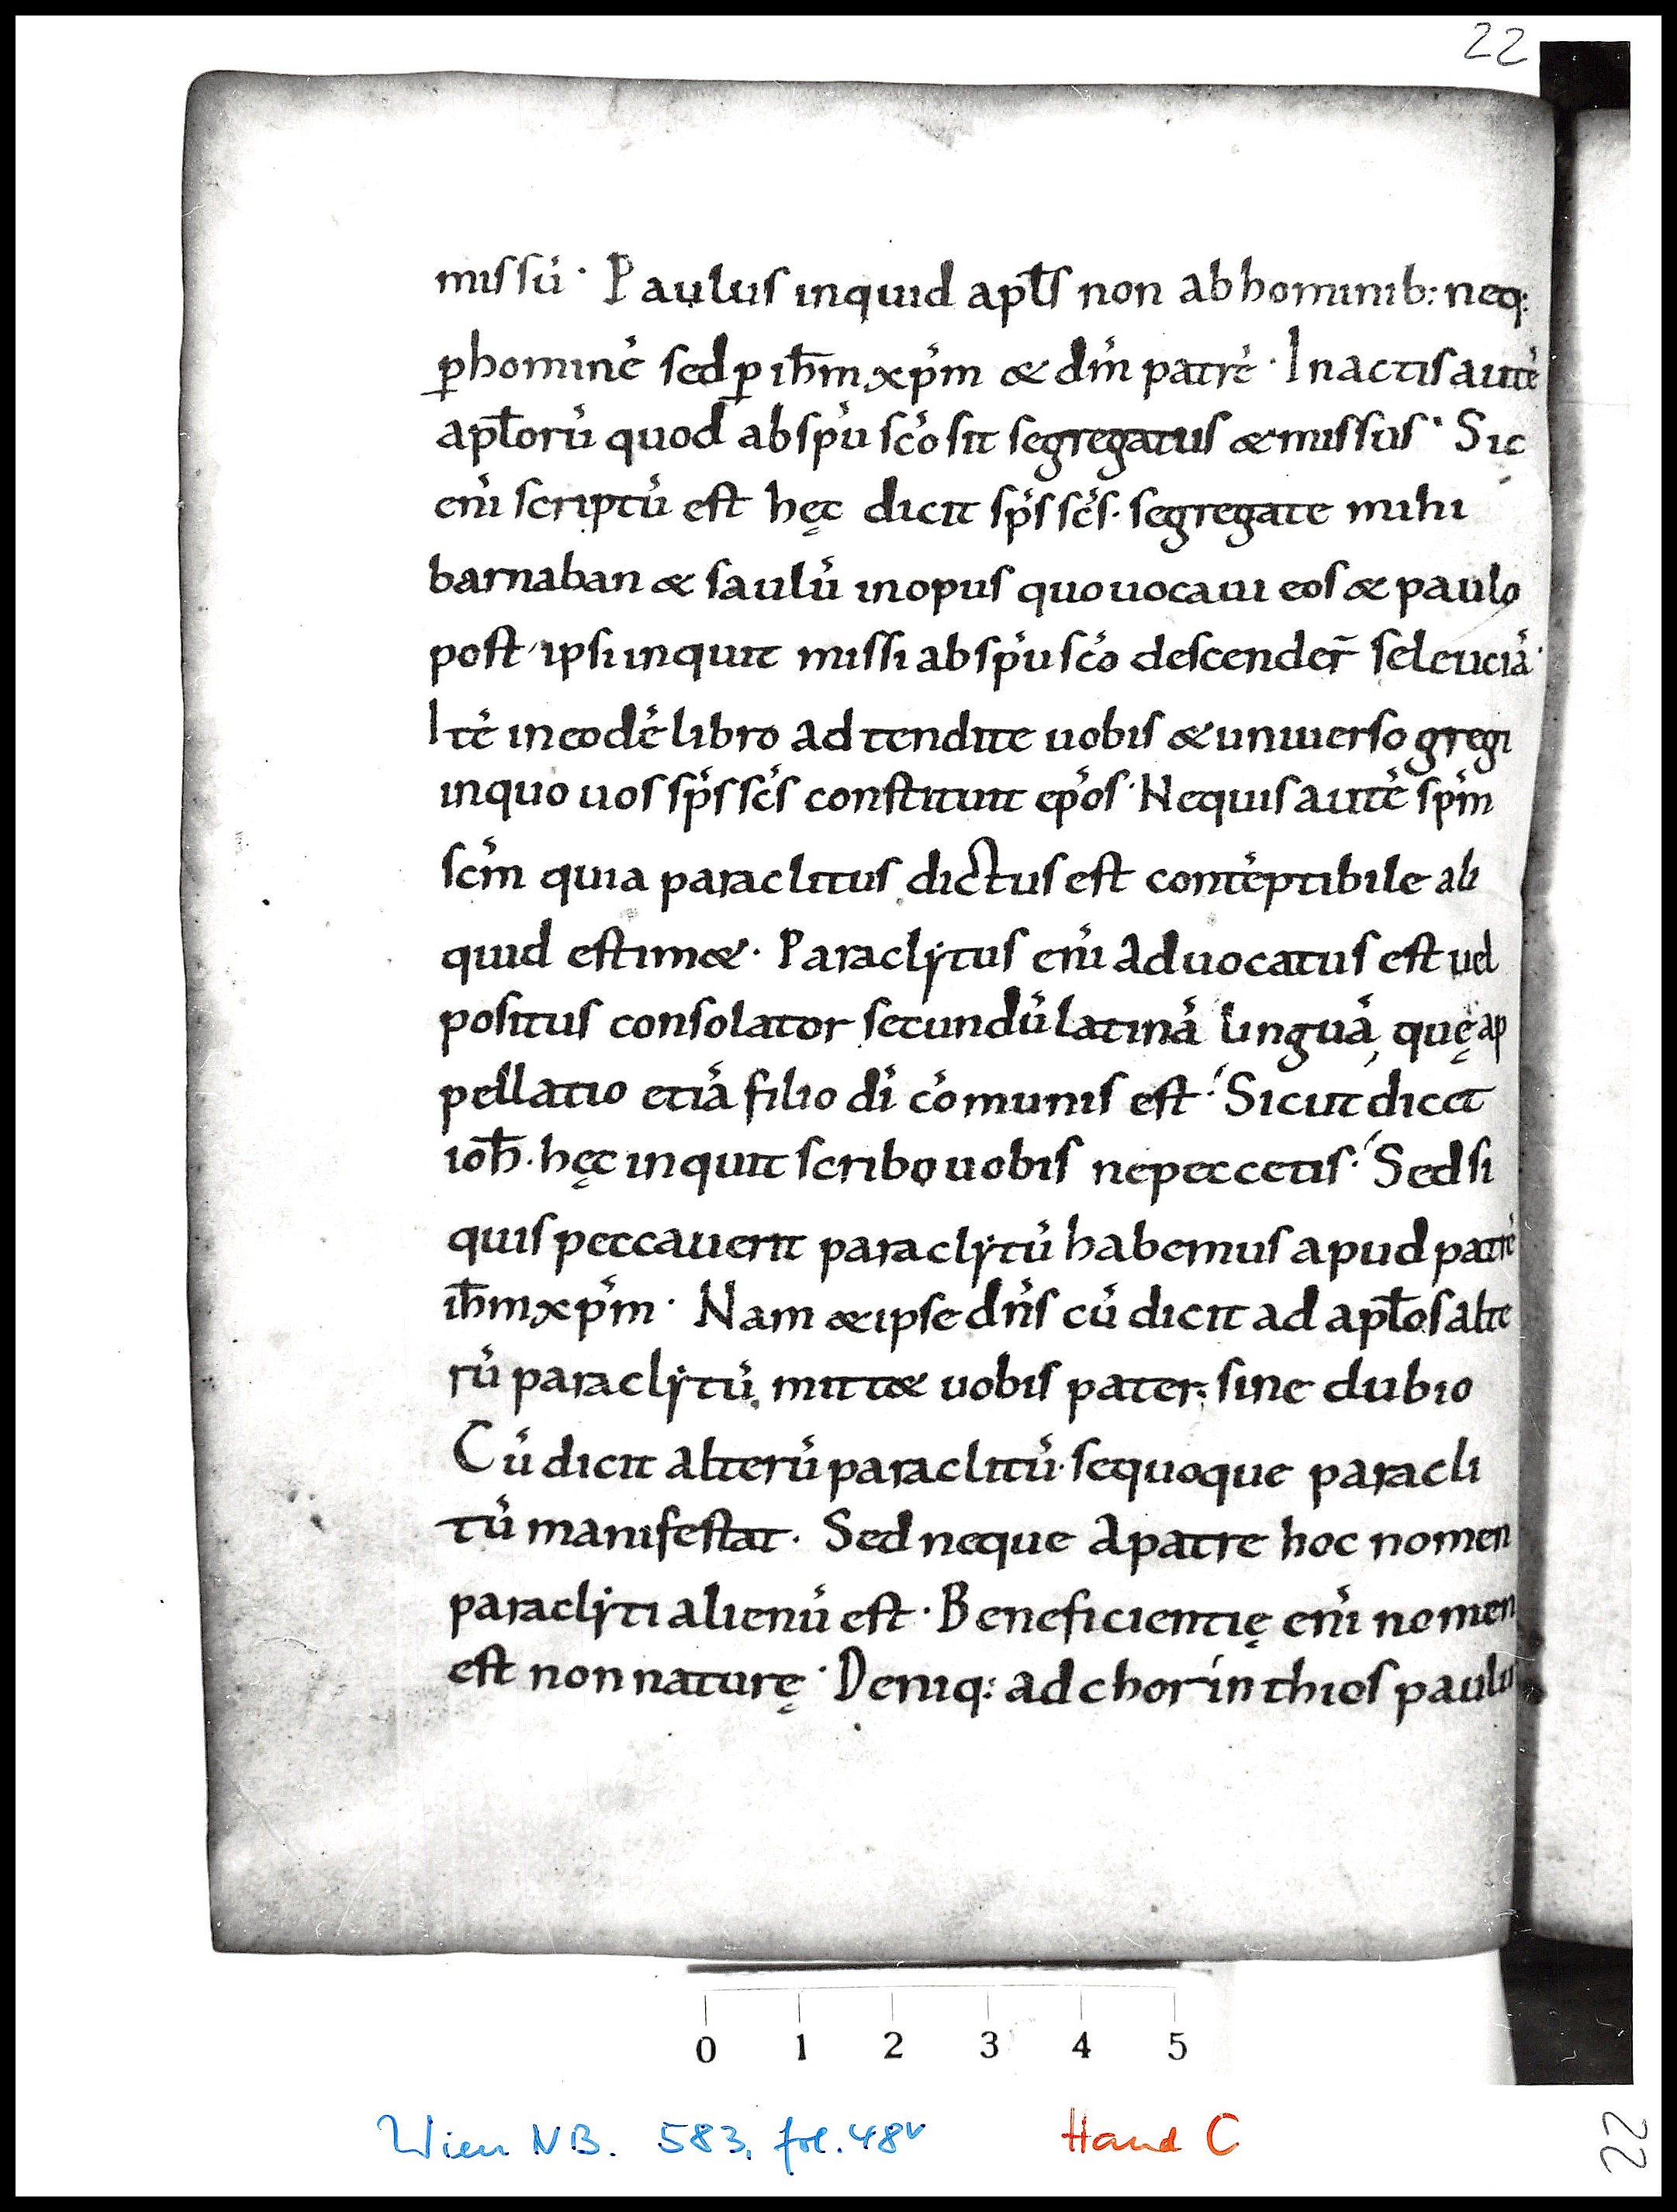 22
missū · Paulus inquid apl̄s non ab hominib: neq:
ꝑhominē sed ꝑ ih̄m xp̄m & dm̄ patrē · In actis autē
apl̄orū quod ab spū scō sit segregatus & missus · Sic
eni̅ scriptū est hęc dicit sp̄s sc̄s · segregate mihi
barnaban & saulū inopus quo uocaui eos & paulo
post ipsi inquit missi ab spū scō descender̄ seleuciā ·
Itē in eodē libro adtendite uobis & uniuerso gregi
inquo uos sp̄s sc̄s constituit ep̄os · Nequis autē sp̄m
sc̄m quia paraclitus dictus est contēptibile ali
quid estim& · Paraclẏtus eni̅ aduocatus est uel
positus consolator secundū latinā linguā, quę ap
pellatio etiā filio dī cōmunis est · Sicut dicit
ioh̄ · hęc inquit scribo uobis ne peccetis · Sed si
quis peccauerit paraclẏtū habemus apud patrē
ih̄m xp̄m · Nam & ipse dn̄s cū dicit ad apl̄os alte
rū paraclẏtū mitt& uobis pater; sine dubio
Cū dicit alterū paraclitū · se quoque paracli
tū manifestat · Sed neque a patre hoc nomen
paraclẏti alienū est · Beneficientię eni̅ nomen
est non naturę · Deniq: ad chorinthios paulus
0 1 2 3 4 5
Wien NB. 583, fol. 48v Hand C
22